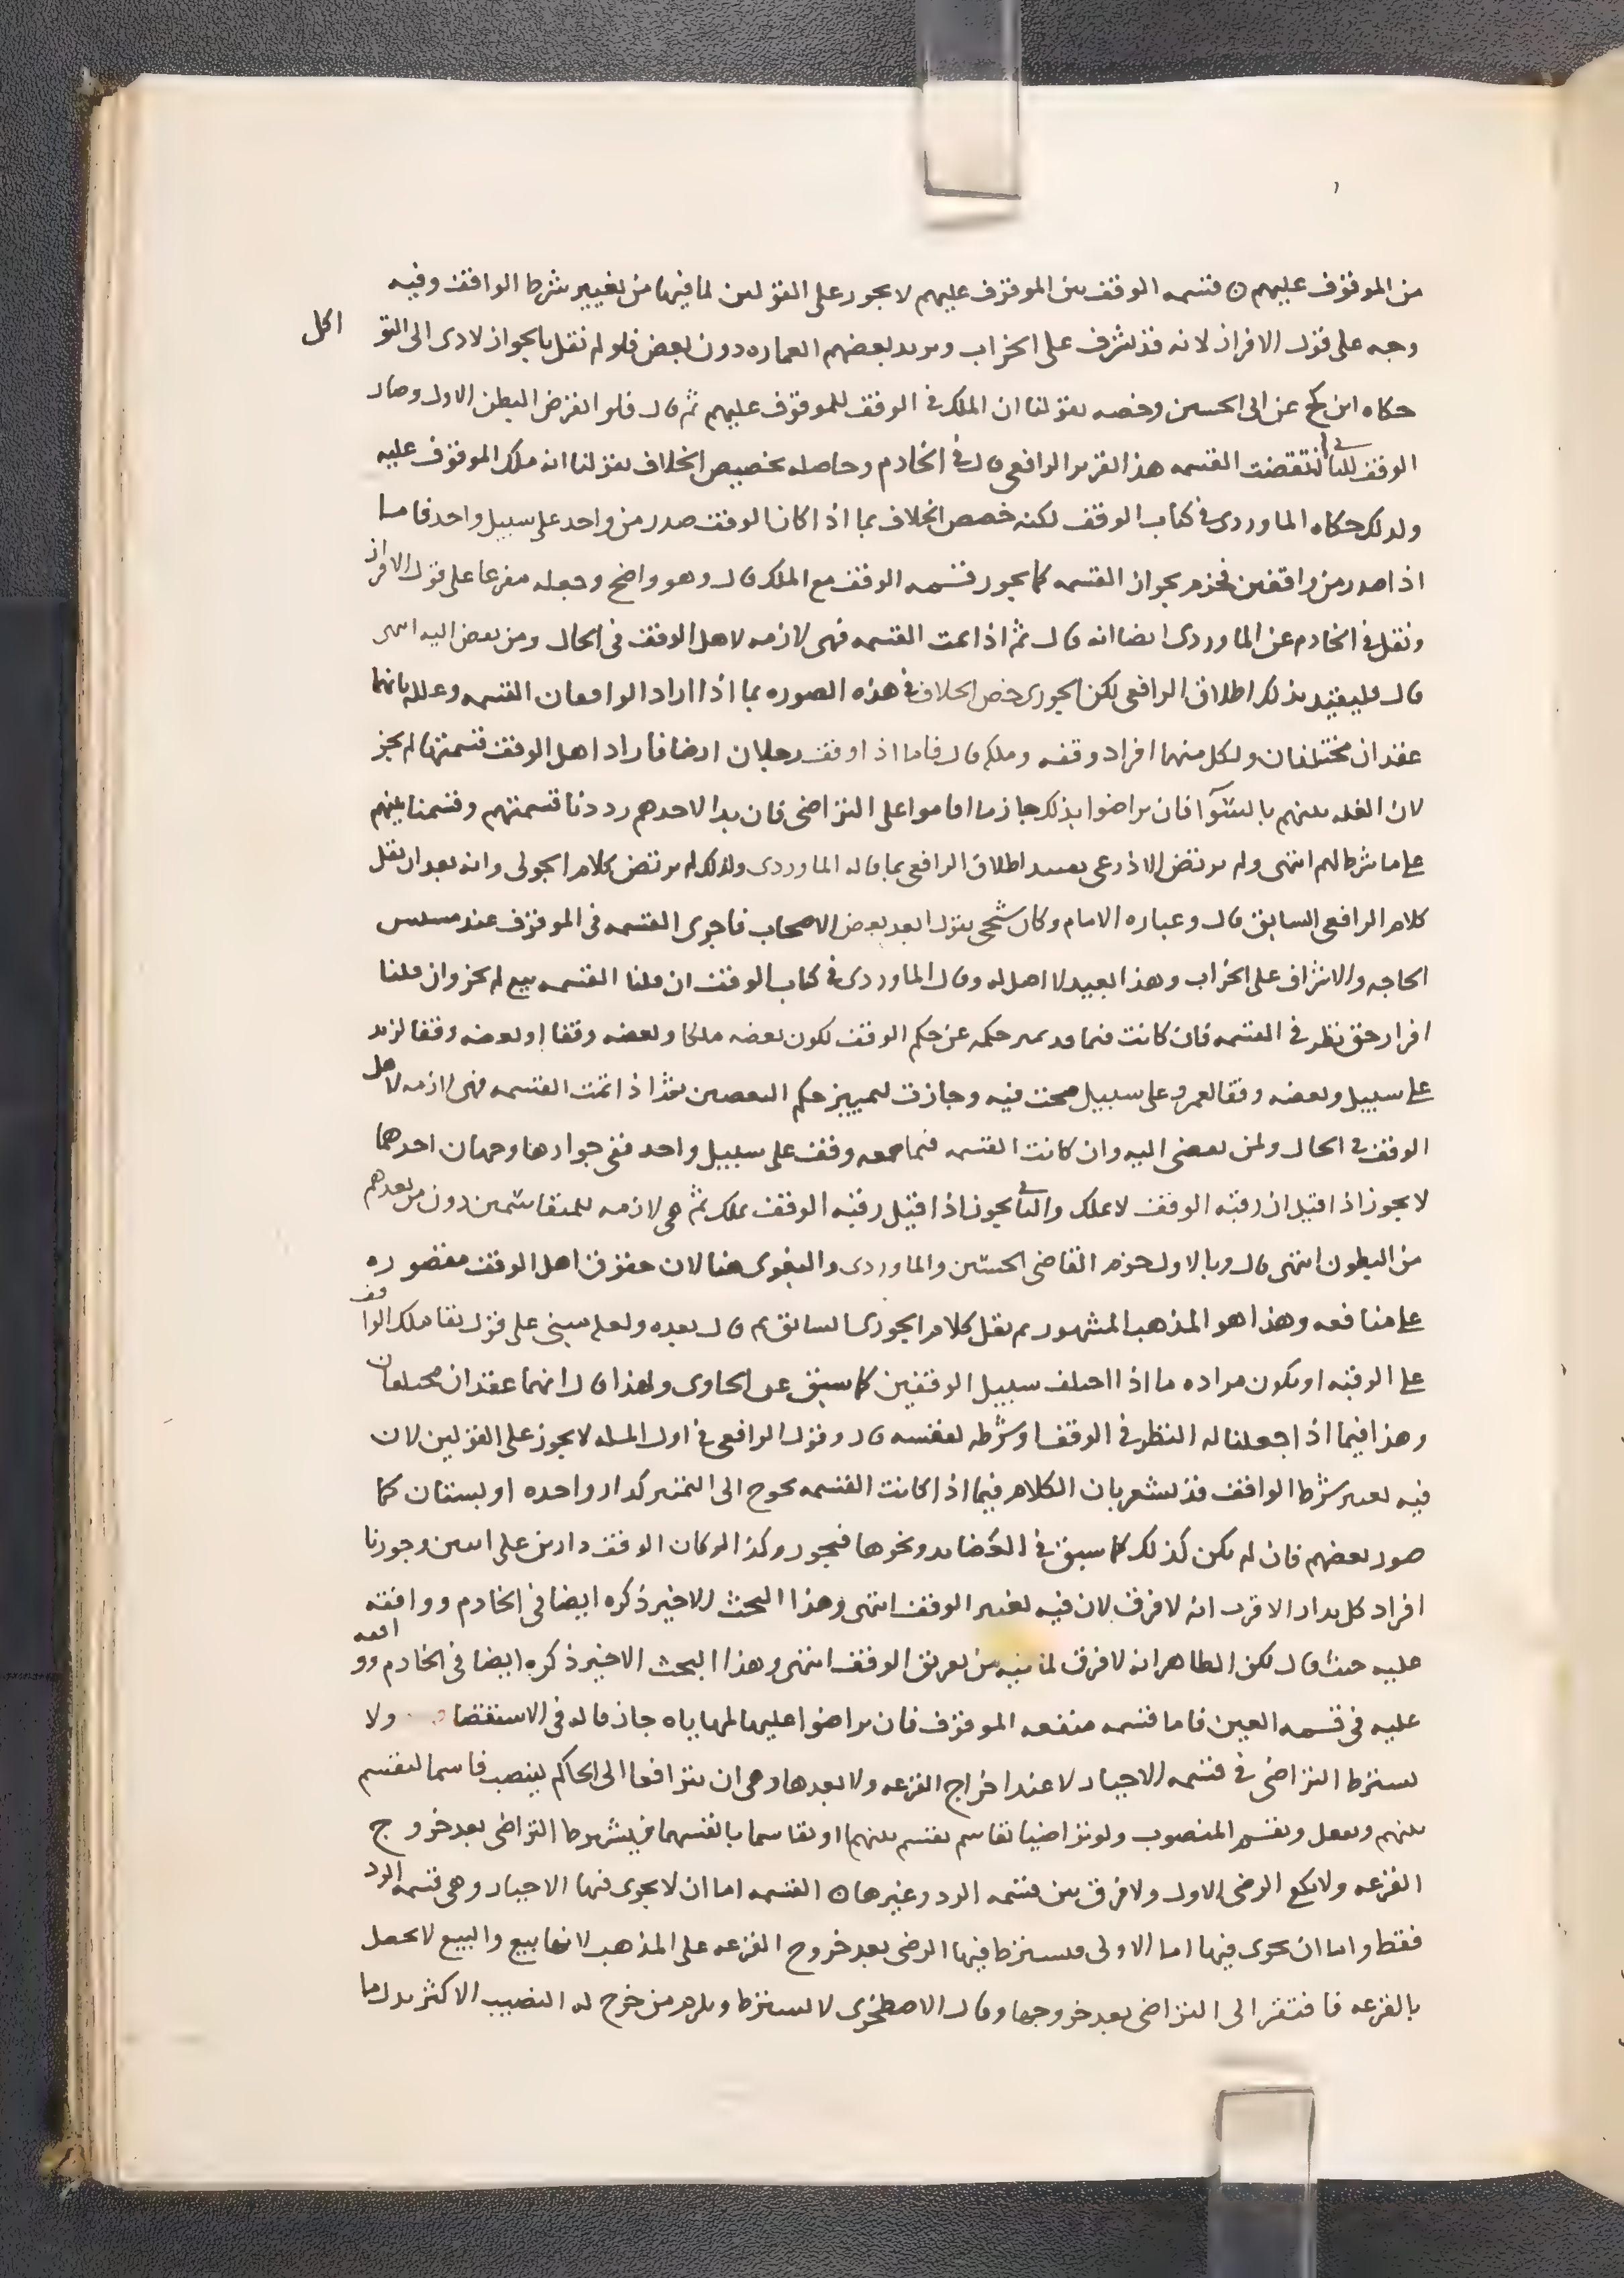 من الموقوف عليهم ں قسمه الوقف بين الموقوف عليهم لا يجوز على القولين لما فيها من تغيير شرط الواقف وفيه
وجه على قول الافراز لانه قد يشرف على الخراب ويريد بعضهم العماره دون بعض فلو لم نقل بالجواز لادى الى التو اكل
حكاه ابن كج عن ابى الحسين وخصه بقولنا ان الملك فى الوقف للموقوف عليهم ثم قال فلو انقرض البطن الاول وصار
الوقف للثانى انتقضت القسمه هذا تقرير الرافعى قال فى الخادم وحاصله تخصيص الخلاف بقولنا انه ملك الموقوف عليه
ولذلك حكاه الماوردى فى كتاب الوقف لكنه خصص الخلاف بما اذا كان الوقف صدر من واحد على سبيل واحد فاما
اذا صدر من واقفين فجزم بجواز القسمه كما يجوز قسمه الوقف مع الملك قال وهو واضح وجعله مفرعا على قول الافراز
ونقل فى الخادم عن الماوردى ايضا انه قال ثم اذا تمت القسمه فهى لازمه لاهل الوقف فى الحال ومن يفضى اليه انتهى
قال فليقيد بذلك اطلاق الرافعى لكن الجورى خص الخلاف فى هذه الصوره بما اذا اراد الواقفان القسمه وعلله بانهما
عقدان مختلفان ولكل منهما افراد وقفه وملكه قال فاما اذا وقف رجلان ارضا فاراد اهل الوقف قسمتها لم يجز
لان الغله بينهم بالسوا فان تراضوا بذلك جاز ما اقاموا على التراضى فان بدا لاحدهم رددنا قسمتهم وقسمنا بينهم
على ما شرط لهم انتهى ولم يرتض الاذرعى تقييد اطلاق الرافعى بما قاله الماوردى ولذلك لم يرتض كلام الجولى وانه بعد ان نقل
كلام الرافعى السابق قال وعباره الامام وكان شيخى يقول ابعد بعض الاصحاب فاجرى القسمه فى الموقوف عند مسيس
الحاجه والاشراف على الخراب وهذا البعيد لا اصل له وقال الماوردى فى كتاب الوقف ان قلنا القسمه بيع لم يجز وان قلنا
افراز حق نظر فى القسمه فان كانت فيما قد تميز حكمه عن حكم الوقف لكون بعضه ملكا وبعضه وقفا او بعضه وقفا لزيد
على سبيل وبعضه وقفا لعمرو على سبيل صحت فيه وجازت لتمييز حكم البعضين بقدا اذا تمت القسمه فهى لازمه لاهل
الوقف فى الحال ولمن يفضى اليه وان كانت القسمه فيما جميعه وقف على سبيل واحد ففى جوازها وجهان احدهما
لا يجوز اذا قيل ان رقبه الوقف لا تملك والثانى يجوز اذا قيل رقبه الوقف تملك ثم هى لازمه للمتقاسمين دون من بعدهم
من البطون انتهى قال وبالاول جزم القاضى الحسين والماوردى والبغوى هنا لان حقوق اهل الوقف مقصوره
على منافعه وهذا هو المذهب المشهور ثم نقل كلام الجورى السابق ثم قال بعده ولعله مبنى على قول بقا ملك الواقف
على الرقبه او يكون مراده ما اذا اختلف سبيل الوقفين كما سبق عن الحاوى ولهذا قال انهما عقدان مختلفان
وهذا فيما اذا جعلنا له النظر فى الوقف او شرطه لنفسه قال وقول الرافعى فى اول المسله لا يجوز على القولين لان
فيه تغيير شرط الواقف قد يشعر بان الكلام فيما اذا كانت القسمه تحوج الى التغيير كدار واحده او بستان كما
صور بعضهم فان لم يكن كذلك كما سبق فى العضايد ونحوها فيجوز وكذا لو كان الوقف دارين على اثنين وجوزنا
افراد كل بدار الاقرب انه لا فرق لان فيه تغيير الوقف انتهى وهذا البحث الاخير ذكره ايضا فى الخادم ووافقه
عليه حيث قال لكن الظاهر انه لا فرق لما فيه من تفريق الوقف انتهى وهذا البحث الاخير ذكره ايضا فى الخادم ووافقه
عليه فى قسمه العين فاما قسمه منفعه الموقوف فان تراضوا عليها لمهاياه جاز قاله فى الاستقصا ولا
يشترط التراضى فى قسمه الاجبار لا عند اخراج القرعه ولا بعدها وهى ان يترافعا الى الحاكم لينصب قاسما ليقسم
بينهم ويفعل ويقسم المنصوب ولو تراضيا بقاسم يقسم بينهما او تقاسما بانفسهما فيشترط التراضى بعد خروج
القرعه ولا يكفى الرضى الاول ولا فرق بين قسمه الرد وغيرها ں القسمه اما ان لا يجرى فيها الاجبار وهى قسمه الرد
فقط واما ان يجرى فيها اما الاولى فيشترط فيها الرضى بعد خروج القرعه على المذهب لانها بيع والبيع لا يحصل
بالقرعه فافتقر الى التراضى بعد خروجها وقال الاصطخرى لا يشترط ويلزم من خرج له النصيب الاكثر بدل ما